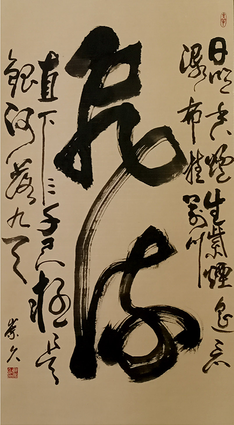 日照香爐生紫煙遙看
瀑布挂前川
飛流
直下三千尺疑是
銀河落九天